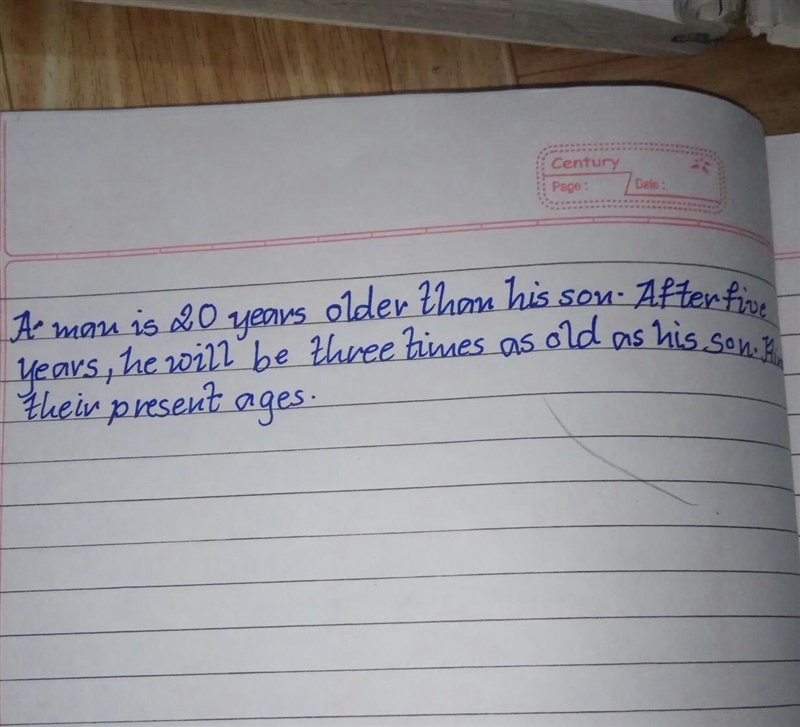 Century
Page :
Date :
A man is 20 years older than his son. After five
years, he will be three times as old as his son.
their present ages.